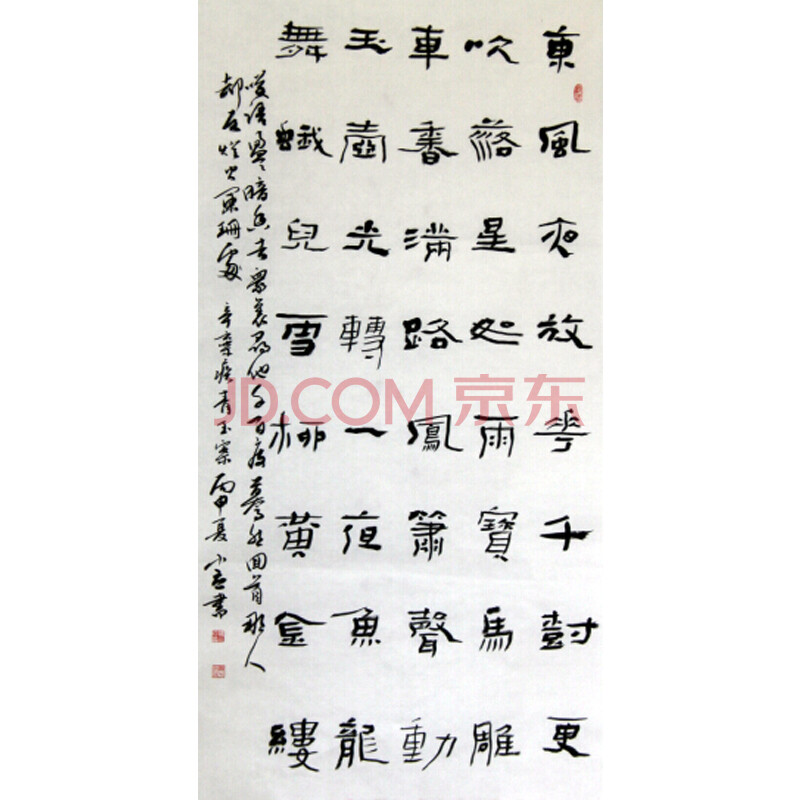 東風夜放花千尌更
吹落星如雨寶馬雕
車香滿路鳳簫聲動
玉壺光轉一夜魚龍
舞蛾兒雪柳黃金縷
咲語盈盈暗香去眾裏尋他千百度驀然回首那人
却在燈火闌珊處 辛棄疾青玉案 丙申夏小書
JD.COM 京东